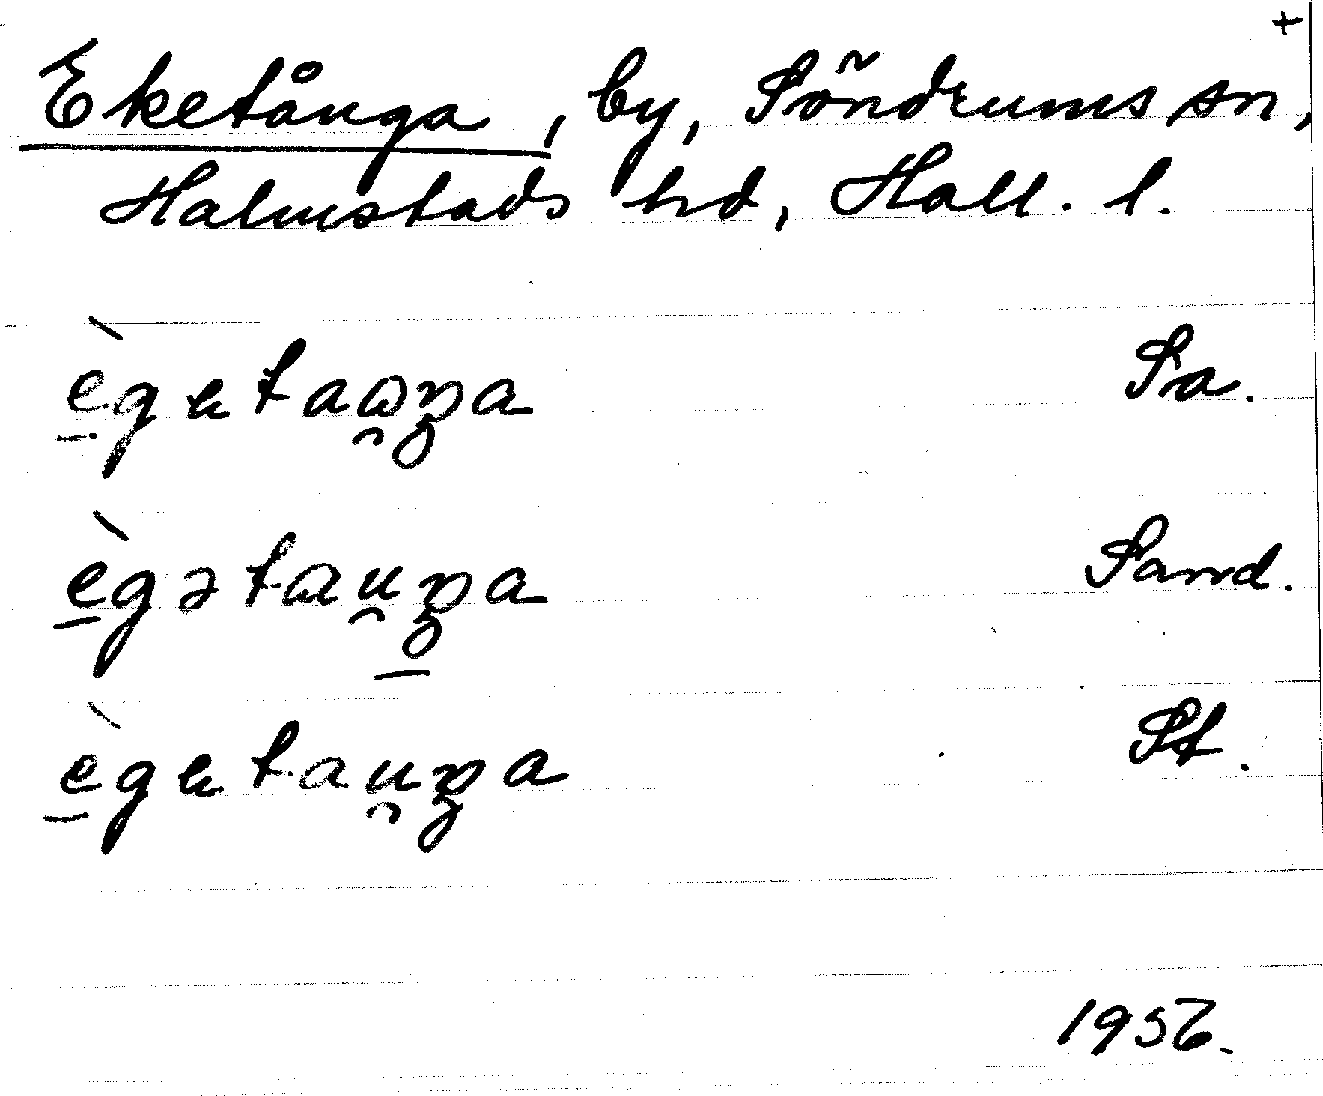 +
Eketånga, by, Söndrums sn,
Halmstads hd, Hall. l.
è̱getaɷ̯ŋa Sa.
è̱gətau̯ŋa Sand.
è̱getau̯ŋa St.
1956.